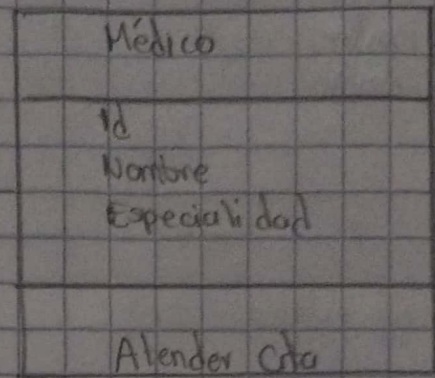 Médico
Id
Nombre
Especialidad
Atender Cita